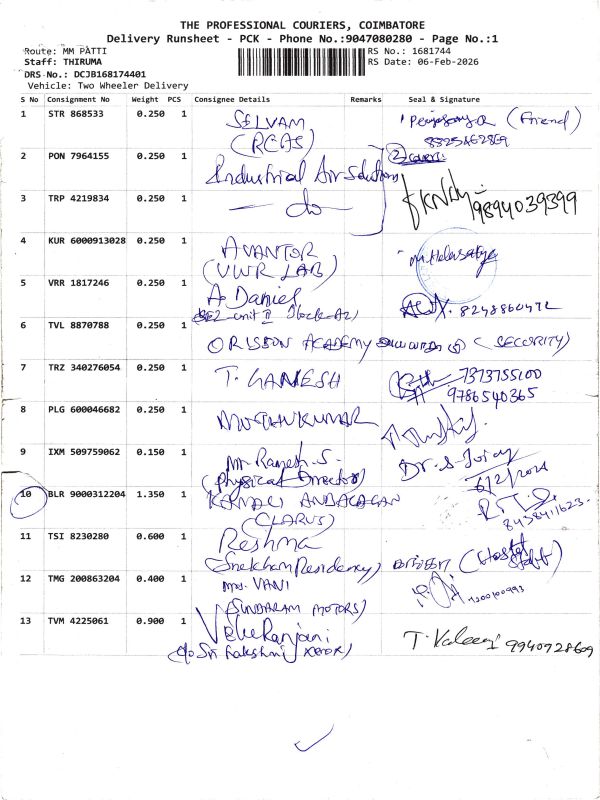 THE PROFESSIONAL COURIERS, COIMBATORE
Delivery Runsheet - PCK - Phone No.:9047080280 - Page No.:1
Route: MM PATTI
Staff: THIRUMA
DRS No.: DCJB168174401
Vehicle: Two Wheeler Delivery
RS No.: 1681744
RS Date: 06-Feb-2026
S No Consignment No Weight PCS Consignee Details Remarks Seal & Signature
1 STR 868533 0.250 1 SELVAM (Friend)
(REAS)
2 PON 7964155 0.250 1 Industrial Air Solutions
3 TRP 4219834 0.250 1 — do — 9894039399
4 KUR 6000913028 0.250 1 AVANTOR
(VWR LAB)
5 VRR 1817246 0.250 1 A. Daniel 8248860472
6 TVL 8870788 0.250 1 ORISSON ACADEMY (SECURITY)
7 TRZ 340276054 0.250 1 T. GANESH 7373755100
9786540365
8 PLG 600046682 0.250 1 MUTHUKUMAR
9 IXM 509759062 0.150 1 Mr. Ramesh. S.
(Physical Director)
6/2/2026
10 BLR 9000312204 1.350 1
(CLARUS) 8438411623
11 TSI 8230280 0.600 1 Reshma
(Snekham Residency) (Hostel Staff)
12 TMG 200863204 0.400 1 Mrs. VANI
(SUNDARAM MOTORS)
13 TVM 4225061 0.900 1
C/o Sri Lakshmi Xerox T. 9940728609